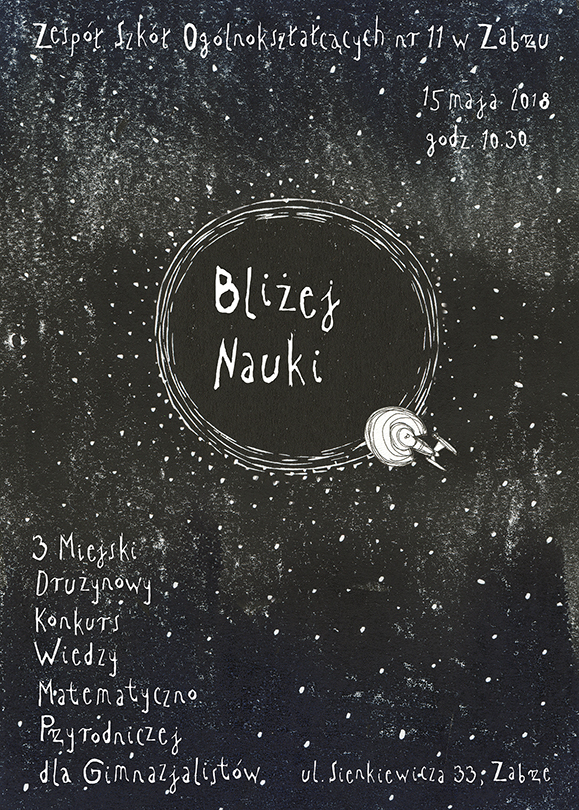 Zespół Szkół Ogólnokształcących nr 11 w Zabrzu
15 maja 2018
godz. 10.30
Bliżej
Nauki
3 Miejski
Drużynowy
Konkurs
Wiedzy
Matematyczno
Przyrodniczej
dla Gimnazjalistów.
ul. Sienkiewicza 33, Zabrze